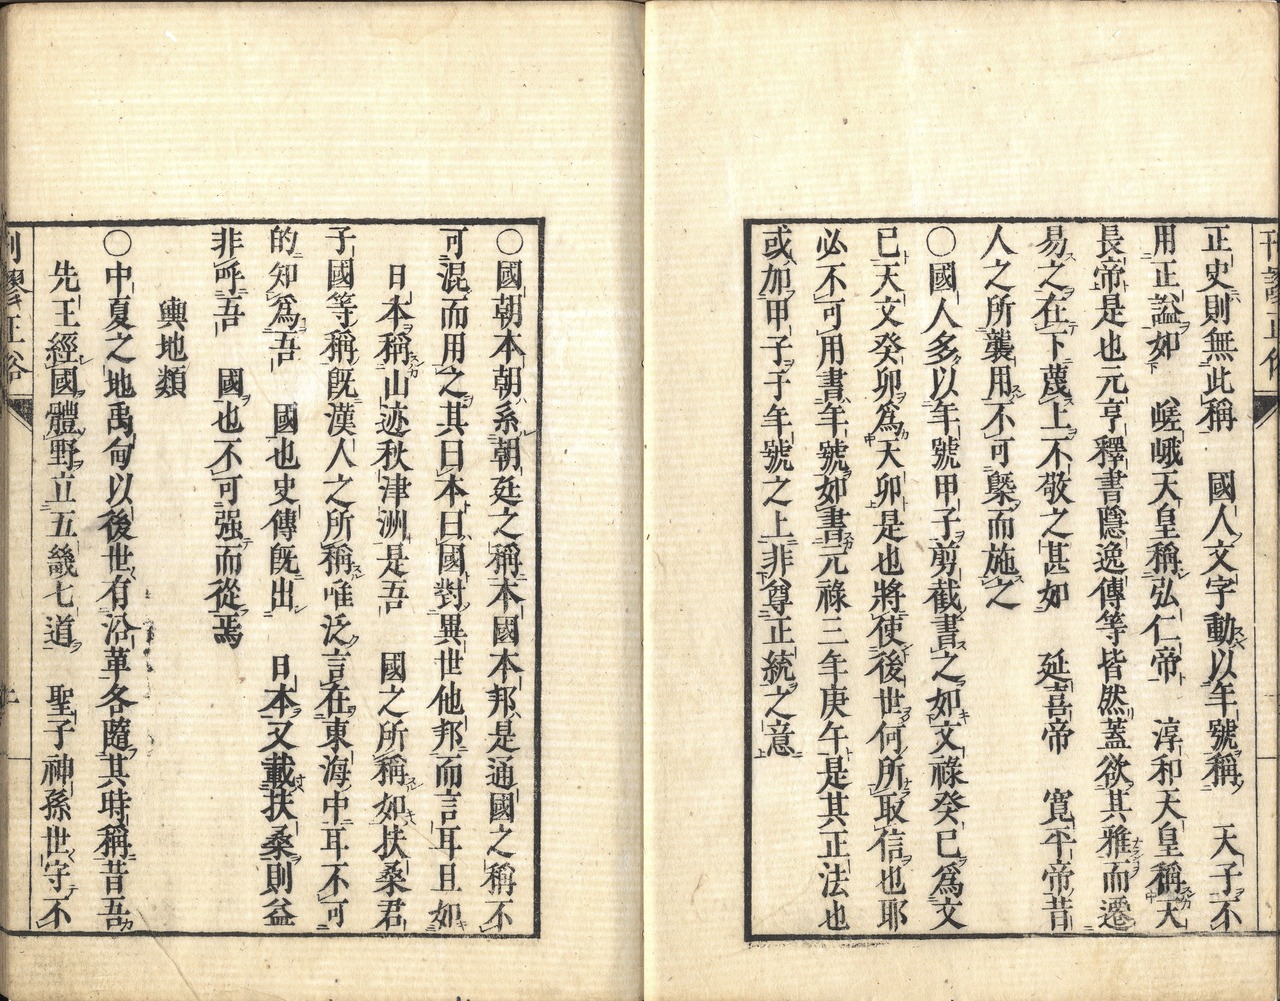 刊謬正俗
正史則無此稱　國人文字動以年號稱　天子不
用正諡如　嵯峨天皇稱弘仁帝　淳和天皇稱天
長帝是也元亨釋書隱逸傳等皆然蓋欲其雅而遷
易之在下蔑上不敬之甚如　延喜帝　寬平帝昔
人之所襲用不可槩而施之
〇國人多以年號甲子剪截書之如文祿癸巳爲文
巳天文癸卯爲天卯是也將使後世何所取信也耶
必不可用書年號如書元祿三年庚午是其正法也
或加甲子于年號之上非尊正統之意
〇國朝本朝系朝廷之稱本國本邦是通國之稱不
可混而用之其曰本曰國對異世他邦而言耳且如
日本稱山迹秋津洲是吾　國之所稱如扶桑君
子國等稱旣漢人之所稱唯泛言在東海中耳不可
的知爲吾　國也史傳旣出　日本又載扶桑則益
非呼吾　國也不可强而從焉
輿地類
〇中夏之地禹甸以後世有沿革各隨其時稱昔吾
先王經國體野立五畿七道　聖子神孫世守不
刊謬正俗